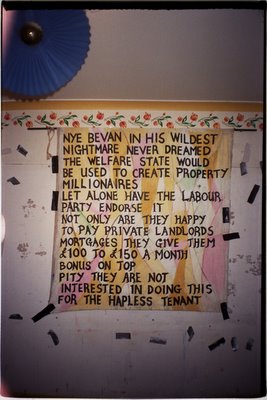 NYE BEVAN IN HIS WILDEST
NIGHTMARE NEVER DREAMED
THE WELFARE STATE WOULD
BE USED TO CREATE PROPERTY
MILLIONAIRES
LET ALONE HAVE THE LABOUR
PARTY ENDORSE IT
NOT ONLY ARE THEY HAPPY
TO PAY PRIVATE LANDLORDS
MORTGAGES THEY GIVE THEM
£100 TO £150 A MONTH
BONUS ON TOP
PITY THEY ARE NOT
INTERESTED IN DOING THIS
FOR THE HAPLESS TENANT